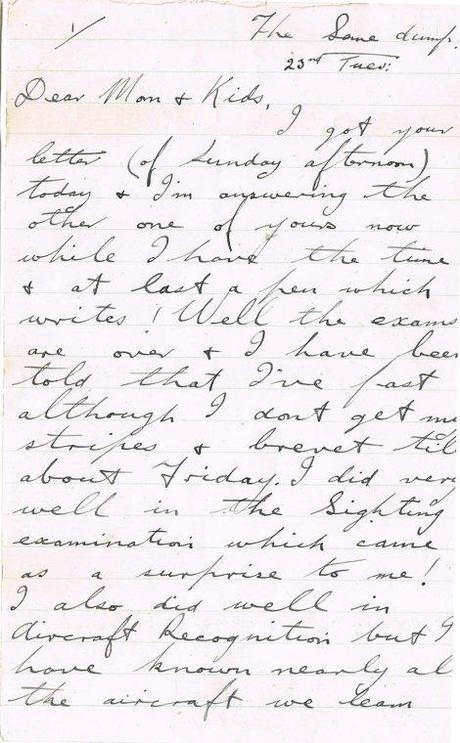 1/
The Same dump.
23rd Tues:
Dear Mom & Kids,
I got your
letter (of Sunday afternoon)
today & I'm answering the
other one of yours now
while I have the time
& at last a pen which
writes! Well the exams
are over & I have been
told that I've past
although I dont get my
stripes & brevet til
about Friday. I did very
well in the Sighting
examination which came
as a surprise to me!
I also did well in
Aircraft Recognition but I
have known nearly al
the aircraft we learn